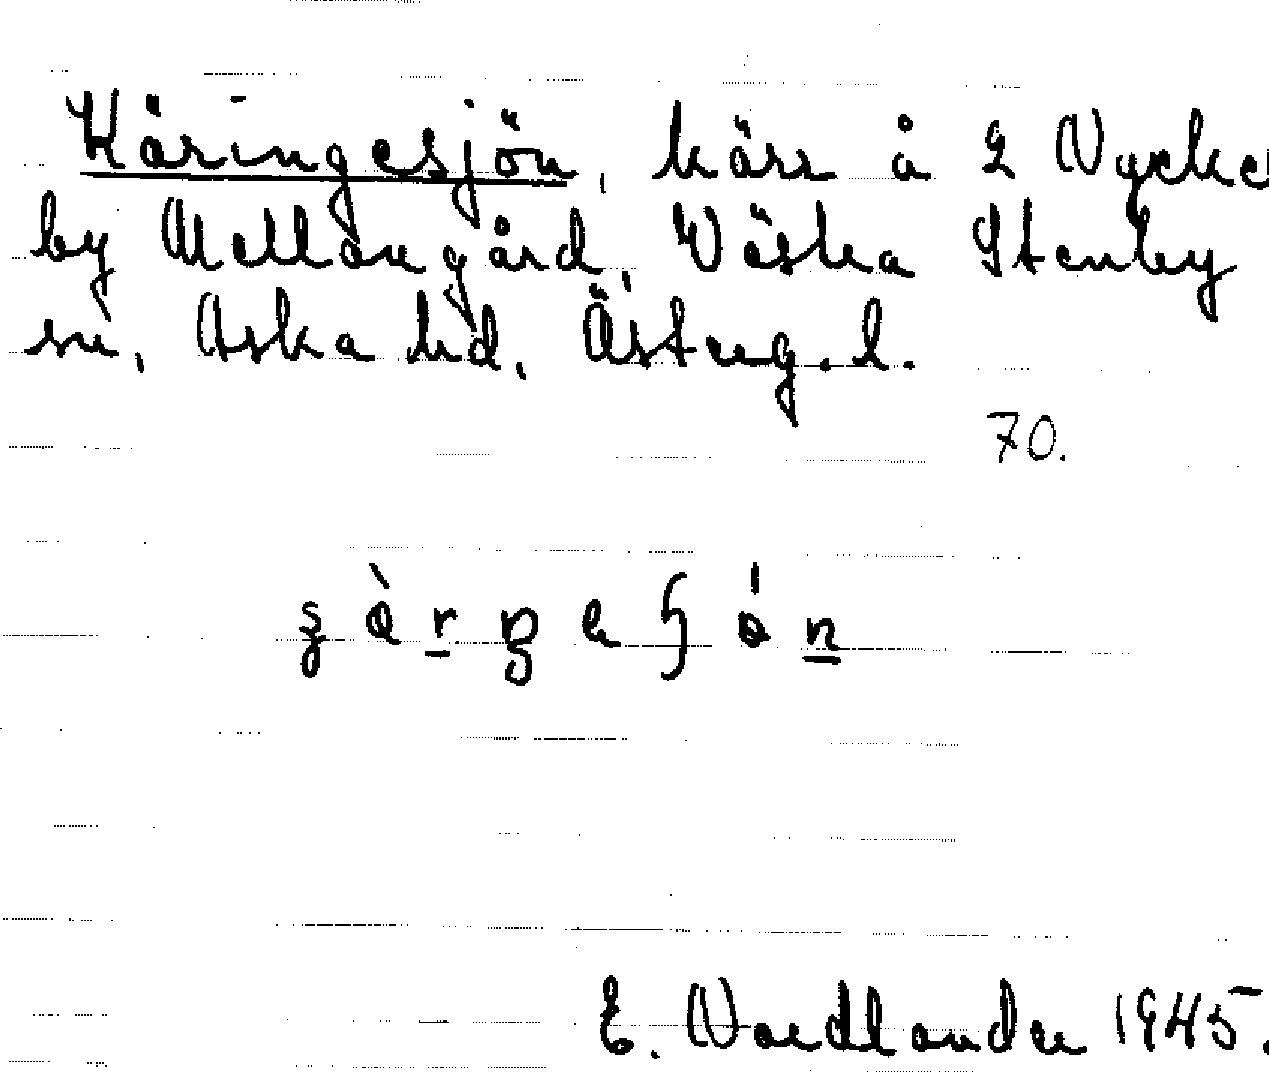 Käringesjön, kärr å 2 Nycke
by Mellangård, Västra Stenby
sn, Aska hd, Österg. l.
70.
E. Nordlander 1945.